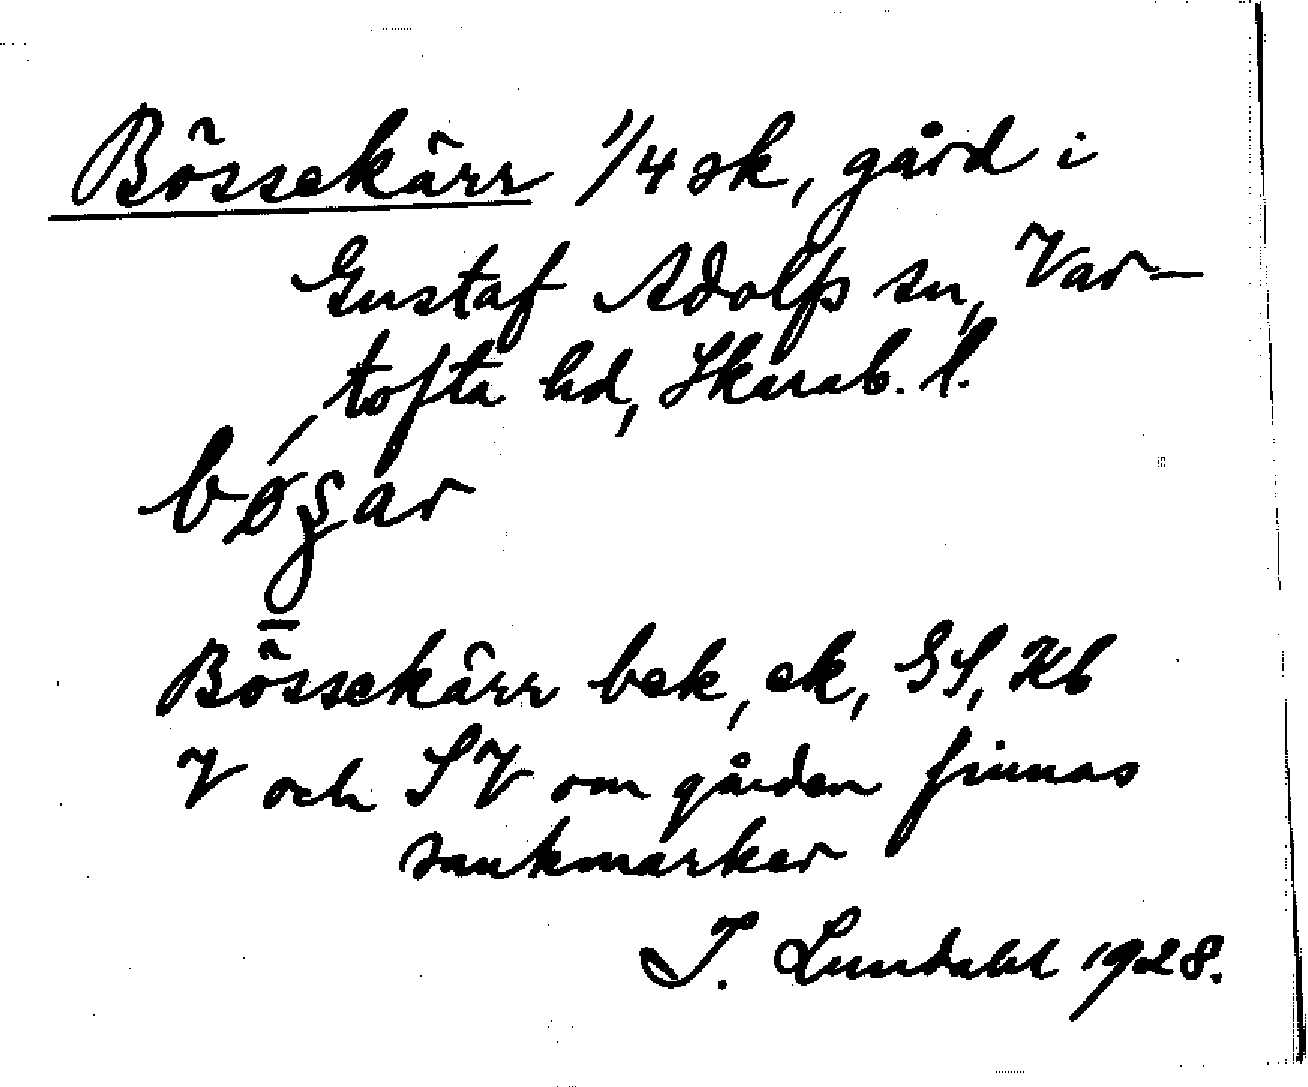 Bössekärr 1/4 sk, gård i
Gustaf Adolfs sn, Var-
tofta hd, Skarab. l.
Bössekärr bek, ek, GS, Kb
V och SV om gården finnas
sankmarker
I. Lundahl 1928.